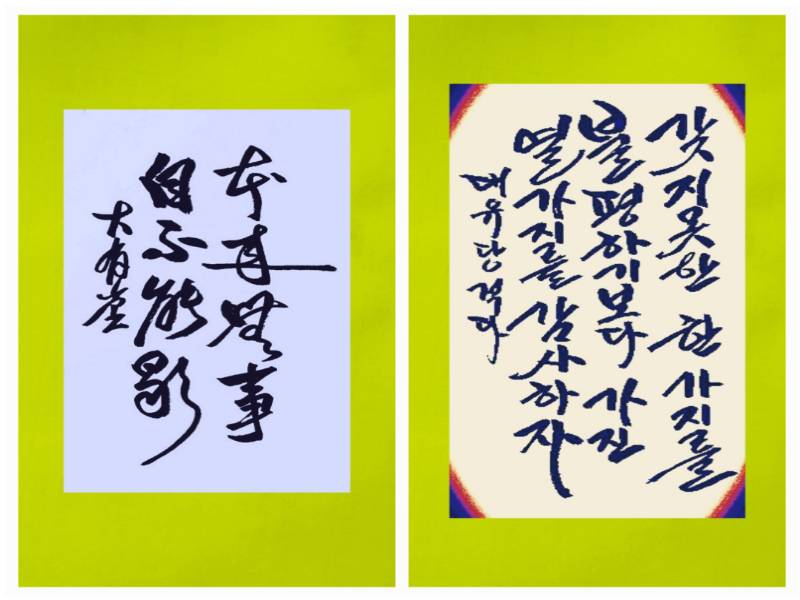 本來無事
自不能歇
大有堂
갖지못한 한 가지를
불평하기보다 가진
열 가지를 감사하자
대유당 적다